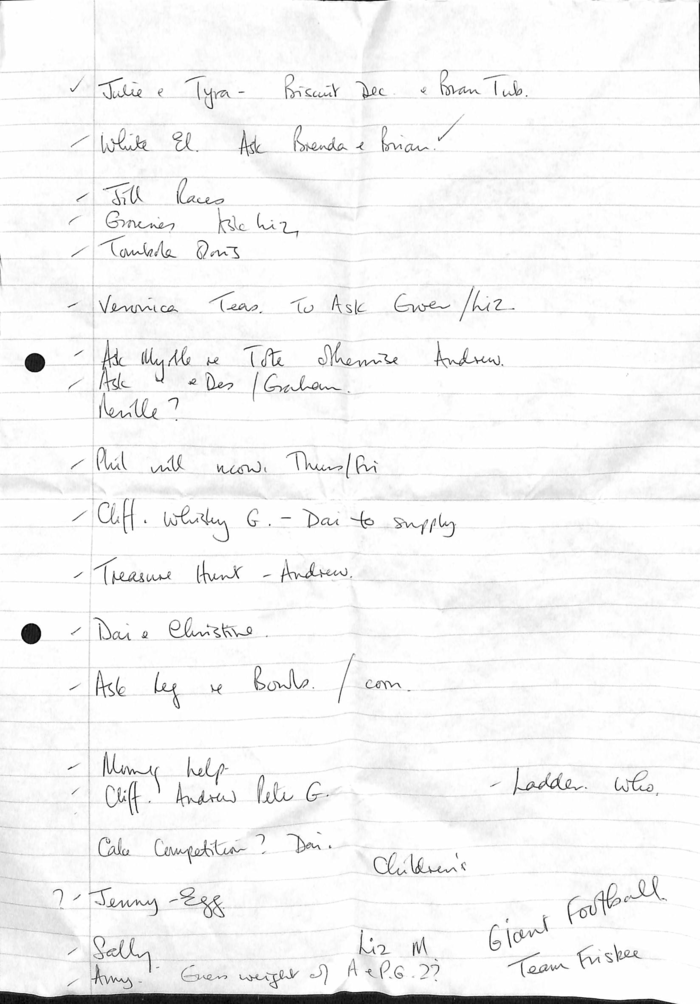 ✓ Julie & Tyra - Biscuit Dec. & Bran Tub.
- White El. Ask Brenda & Brian. ✓
- Jill Races
- Groceries Ask Liz,
- Tombola Doris
- Veronica Teas. To Ask Gwen / Liz.
- Ask Myrtle re Tote otherwise Andrew.
- Ask " & Des / Graham.
Neville?
- Phil will mow. Thurs/Fri
- Cliff. Whisky G. - Dai to supply
- Treasure Hunt - Andrew.
- Dai & Christine.
- Ask Reg re Bowls. / com.
- Money help.
- Cliff. Andrew Pete G.
- Ladder. Who.
Cake Competition? Dai.
Children's
? - Jenny - Egg
Giant Football.
- Sally. Liz M
Team Friskee
- Amy. Guess weight of A & P.G. 2??